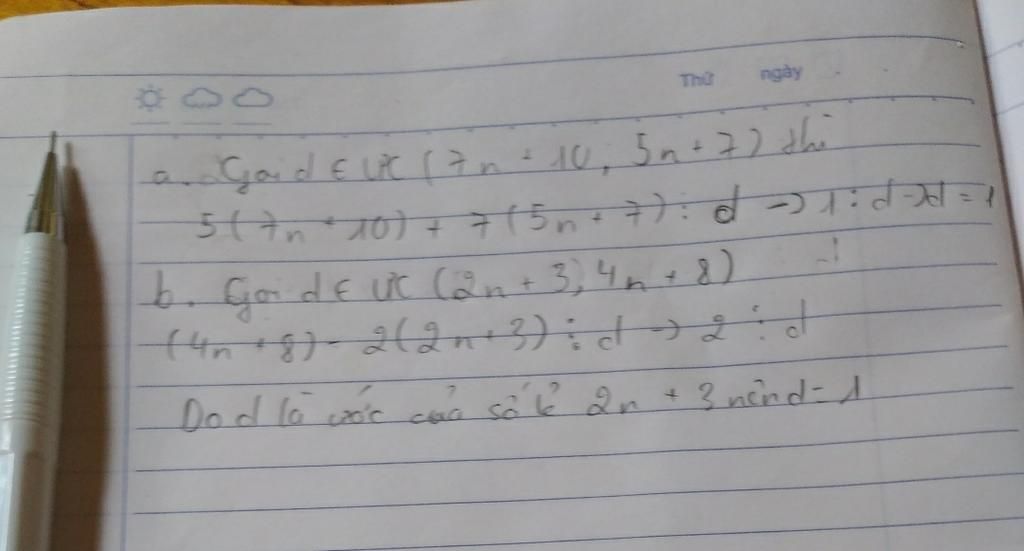 Thứ ngày
a. Gọi d ∈ ƯC (7n + 10, 5n + 7) thì
5(7n + 10) + 7(5n + 7) ⋮ d → 1 ⋮ d → d = 1
b. Gọi d ∈ ƯC (2n + 3, 4n + 8)
(4n + 8) - 2(2n + 3) ⋮ d → 2 ⋮ d
Do d là ước của số lẻ 2n + 3 nên d = 1